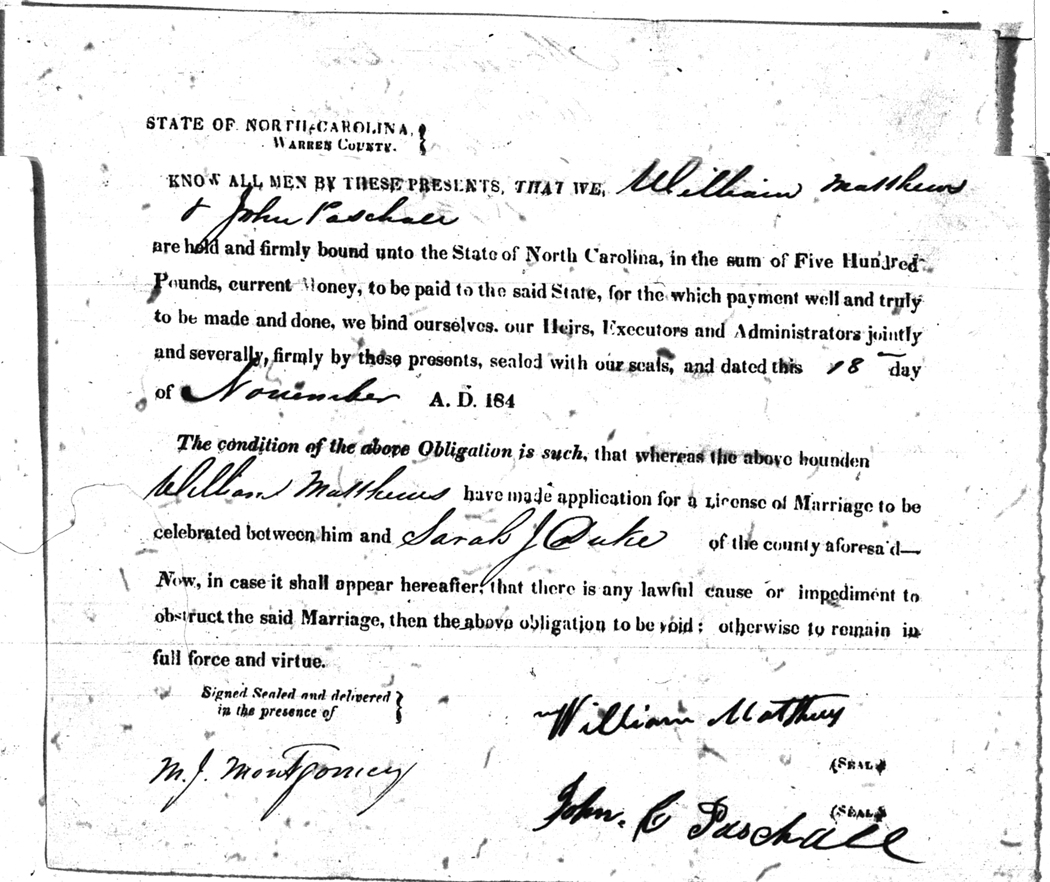 STATE OF NORTH-CAROLINA,
WARREN COUNTY.
KNOW ALL MEN BY THESE PRESENTS, THAT WE, William Matthews
& John Paschall
are held and firmly bound unto the State of North Carolina, in the sum of Five Hundred
Pounds, current Money, to be paid to the said State, for the which payment well and truly
to be made and done, we bind ourselves. our Heirs, Executors and Administrators jointly
and severally, firmly by these presents, sealed with our seals, and dated this 18 day
of November A. D. 184
The condition of the above Obligation is such, that whereas the above bounden
William Matthews have made application for a License of Marriage to be
celebrated between him and Sarah J Duke of the county aforesa'd—
Now, in case it shall appear hereafter, that there is any lawful cause or impediment to
obstruct the said Marriage, then the above obligation to be void; otherwise to remain in
full force and virtue.
Signed Sealed and delivered
in the presence of
William Matthews
(SEAL)
M. J. Montgomery
(SEAL)
John. C Paschall